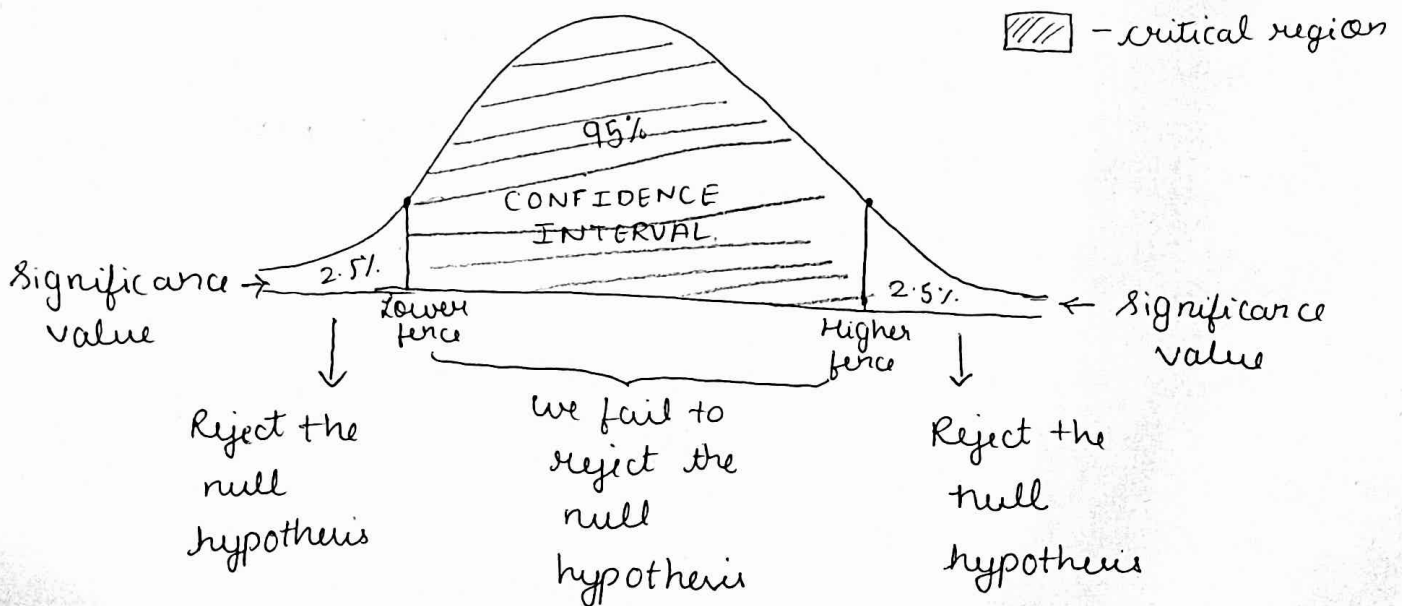 - critical region
95%
CONFIDENCE
INTERVAL.
2.5%
2.5%
Significance
value
Lower
fence
Higher
fence
Significance
value
Reject the
null
hypothesis
we fail to
reject the
null
hypothesis
Reject the
null
hypothesis